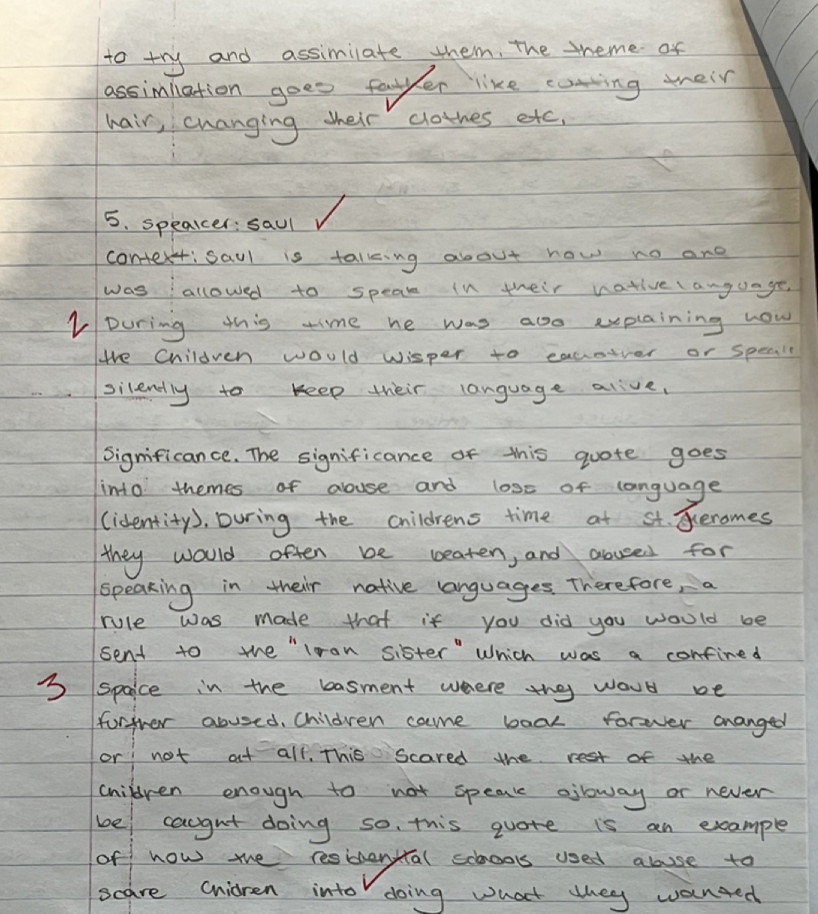 to try and assimilate them. The theme of
assimilation goes father like cutting their
hair, changing their clothes etc.
5. speaker: saul
context: saul is talking about how no one
was allowed to speak in their native language.
2 During this time he was also explaining how
the children would wisper to eachother or speak
silently to keep their language alive.
Significance. The significance of this quote goes
into themes of abuse and loss of language
(identity). During the childrens time at St. Jeromes
they would often be beaten, and abused for
speaking in their native languages. Therefore, a
rule was made that if you did you would be
sent to the "Iron Sister" which was a confined
3 space in the basment where they would be
further abused. Children came back forever changed
or not at all. This scared the rest of the
children enough to not speak ojibway or never
be caught doing so. this quote is an example
of how the residential schools used abuse to
scare children into doing what they wanted